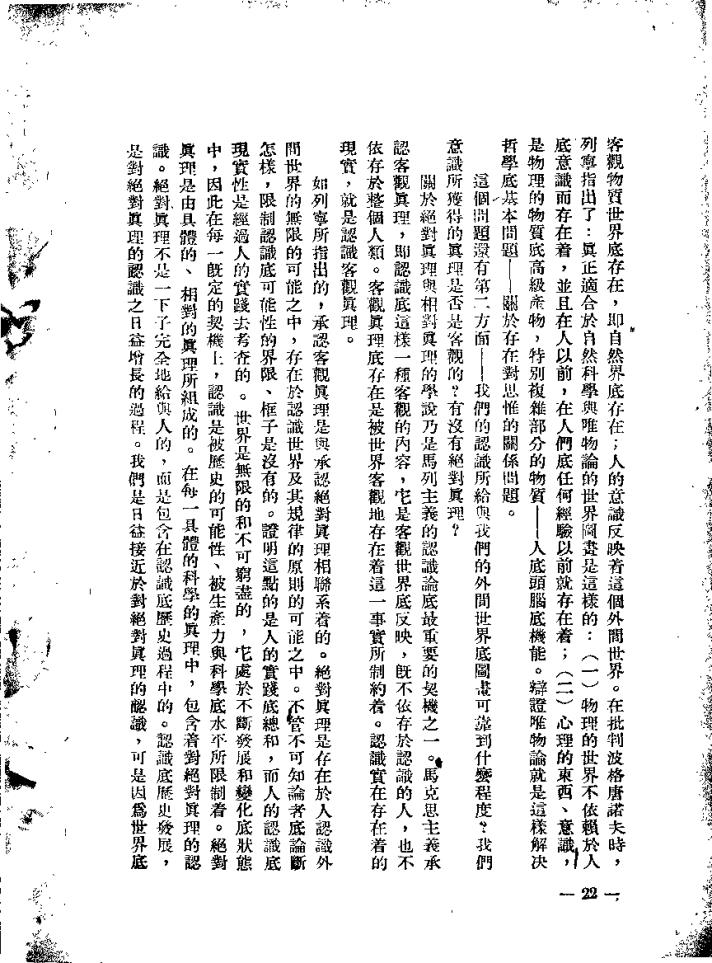 客觀物質世界底存在，即自然界底存在；人的意識反映着這個外間世界。在批判波格唐諾夫時，
列寧指出了：眞正適合於自然科學與唯物論的世界圖畫是這樣的：（一）物理的世界不依賴於人
底意識而存在着，並且在人以前，在人們底任何經驗以前就存在着；（二）心理的東西、意識，
是物理的物質底高級產物，特別複雜部分的物質——人底頭腦底機能。辯證唯物論就是這樣解决
哲學底基本問題——關於存在對思惟的關係問題。
這個問題還有第二方面——我們的認識所給與我們的外間世界底圖畫可靠到什麼程度？我們
意識所獲得的眞理是否是客觀的？有沒有絕對眞理？
關於絕對眞理與相對眞理的學說乃是馬列主義的認識論底最重要的契機之一。馬克思主義承
認客觀眞理，即認識底這樣一種客觀的內容，它是客觀世界底反映，旣不依存於認識的人，也不
依存於整個人類。客觀眞理底存在是被世界客觀地存在着這一事實所制約着。認識實在存在着的
現實，就是認識客觀眞理。
如列寧所指出的，承認客觀眞理是與承認絕對眞理相聯系着的。絕對眞理是存在於人認識外
間世界的無限的可能之中，存在於認識世界及其規律的原則的可能之中。不管不可知論者底論斷
怎樣，限制認識底可能性的界限、框子是沒有的。證明這點的是人的實踐底總和，而人的認識底
現實性是經過人的實踐去考查的。世界是無限的和不可窮盡的，它處於不斷發展和變化底狀態
中，因此在每一旣定的契機上，認識是被歷史的可能性、被生產力與科學底水平所限制着。絕對
眞理是由具體的、相對的眞理所組成的。在每一具體的科學的眞理中，包含着對絕對眞理的認
識。絕對眞理不是一下子完全地給與人的，而是包含在認識底歷史過程中的。認識底歷史發展，
是對絕對眞理的認識之日益增長的過程。我們是日益接近於對絕對眞理的認識，可是因爲世界底
— 22 —